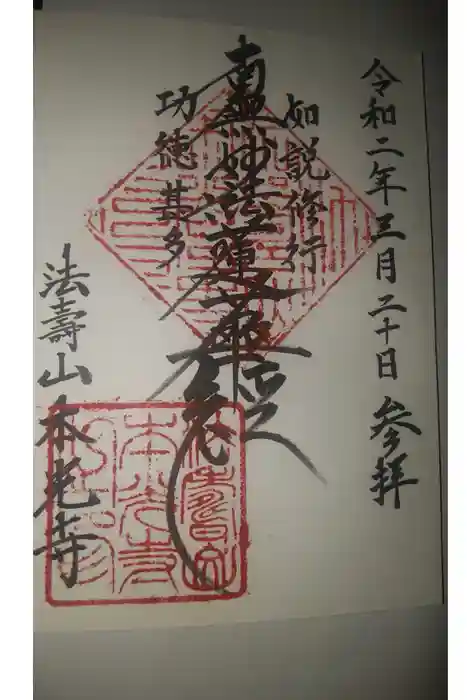 令和二年三月二十日 参拝
如説修行
南無妙法蓮華經
功徳甚多
法壽山本光寺